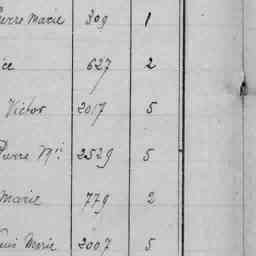 Pierre Marie 309 1
ice 627 2
Victor 2017 5
Pierre Mie 2529 5
Marie 779 2
Louis Marie 2007 5